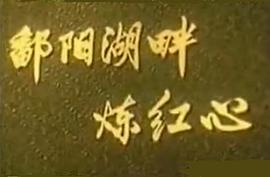 鄱阳湖畔
炼红心